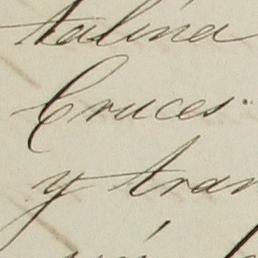 talina
Cruces.
y tran